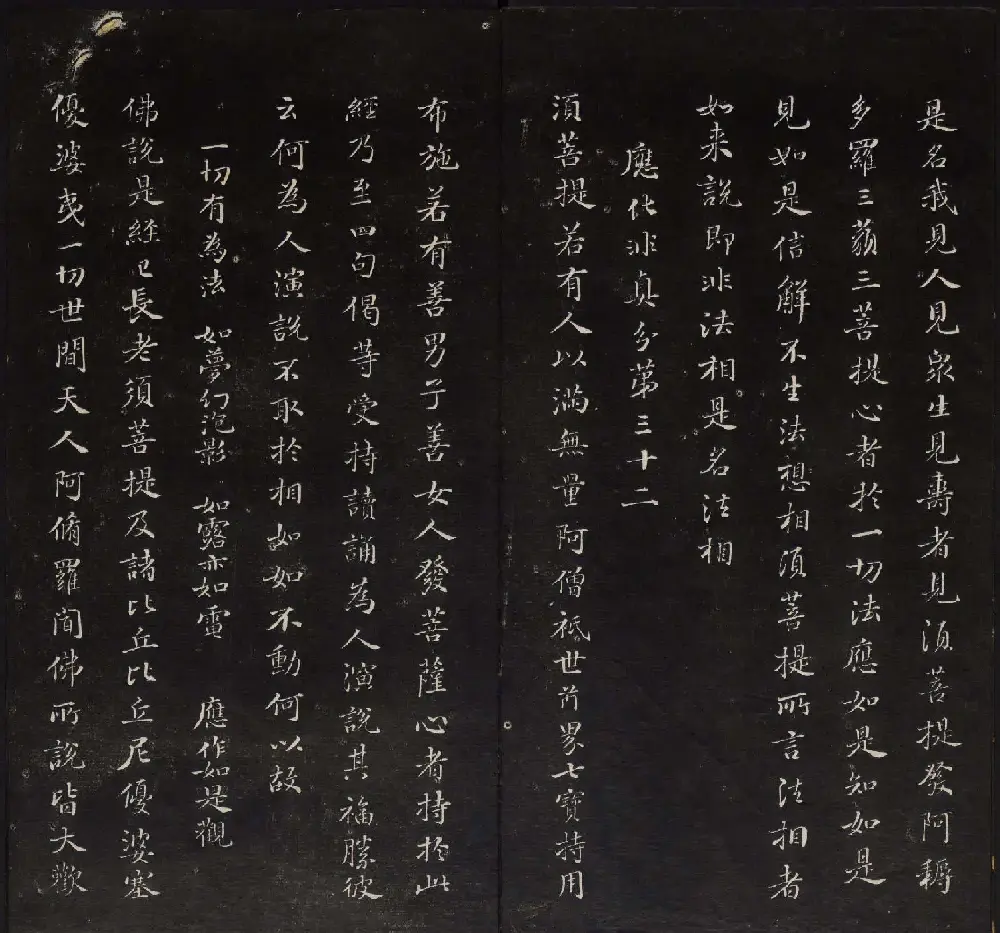 是名我見人見衆生見壽者見須菩提發阿耨
多羅三藐三菩提心者於一切法應如是知如是
見如是信解不生法想相須菩提所言法相者
如来說即非法相是名法相
應化非真分第三十二
須菩提若有人以滿無量阿僧祇世界七寶持用
布施若有善男子善女人發菩薩心者持於此
經乃至四句偈等受持讀誦為人演說其福勝彼
云何為人演說不取於相如如不動何以故
一切有為法 如夢幻泡影 如露亦如電 應作如是觀
佛說是經已長老須菩提及諸比丘比丘尼優婆塞
優婆夷一切世間天人阿脩羅聞佛所說皆大歡